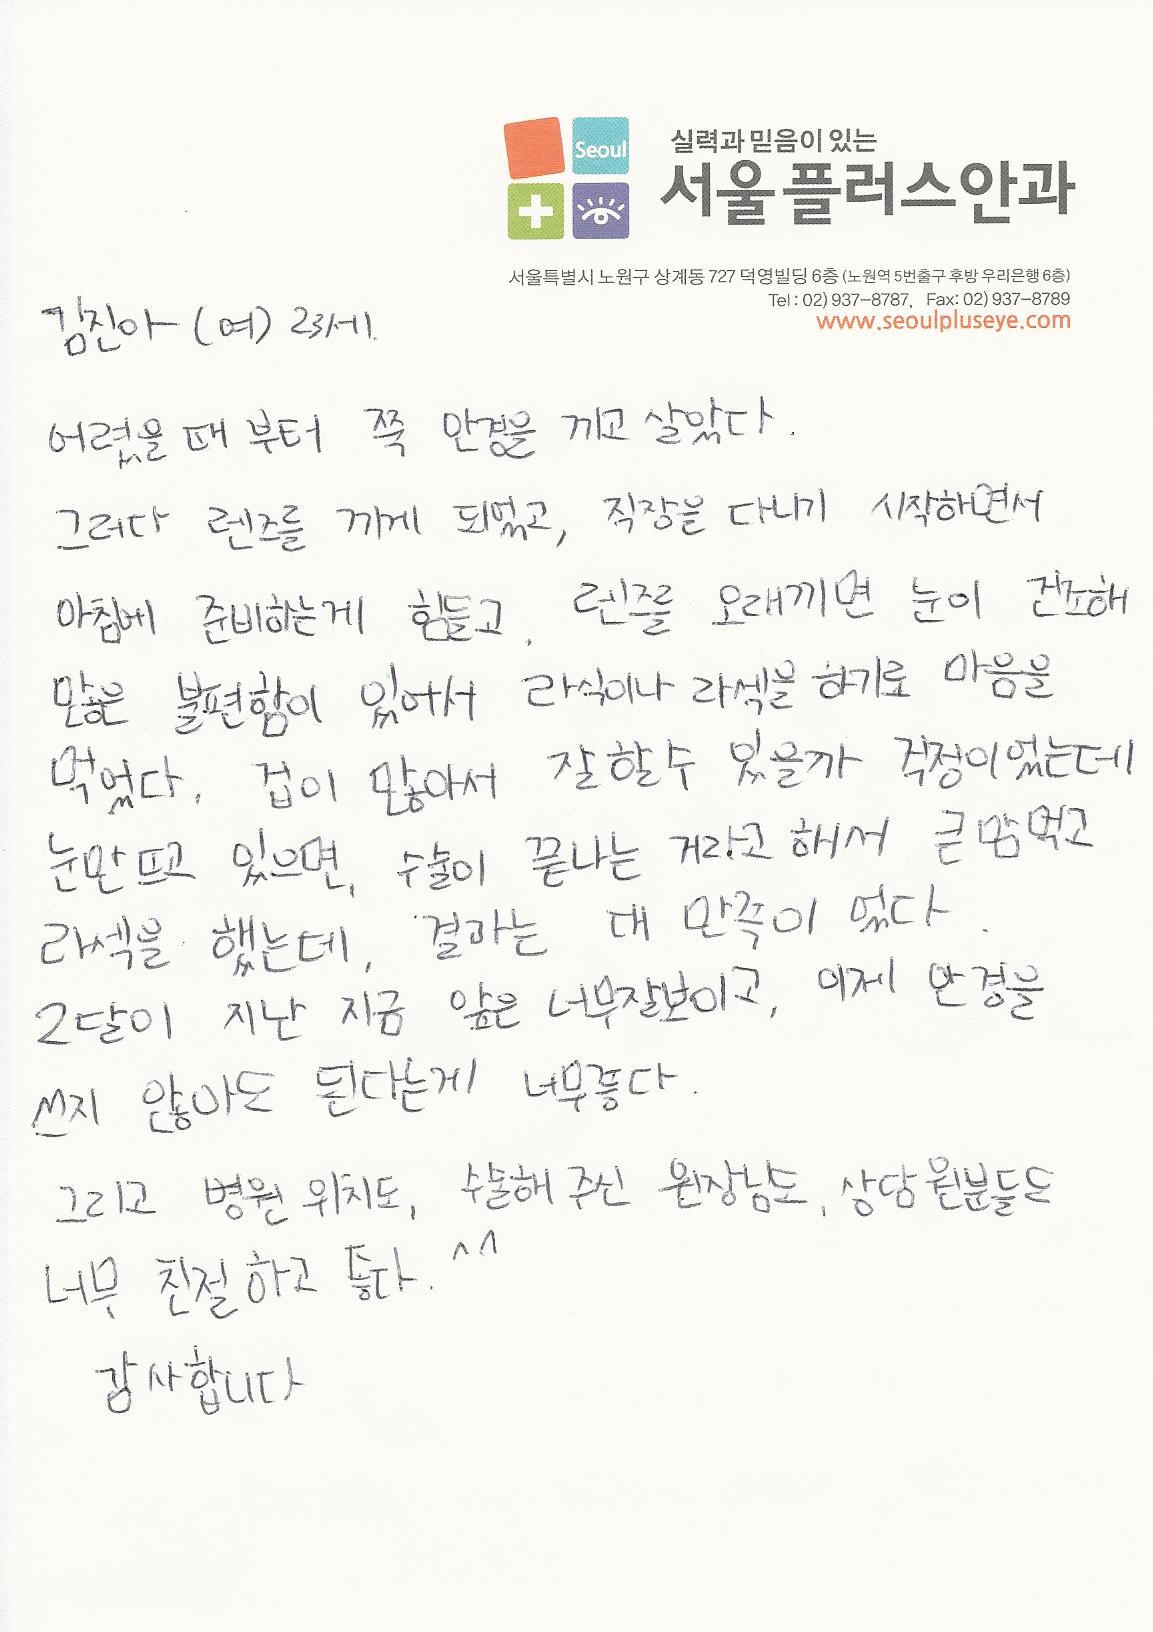 실력과 믿음이 있는
Seoul
서울플러스안과
서울특별시 노원구 상계동 727 덕영빌딩 6층 (노원역 5번출구 후방 우리은행 6층)
Tel : 02) 937-8787,  Fax: 02) 937-8789
www.seoulpluseye.com
김진아 (여) 23세.
어렸을 때 부터 쭉 안경을 끼고 살았다.
그러다 렌즈를 끼게 되었고, 직장을 다니기 시작하면서
아침에 준비하는게 힘들고, 렌즈를 오래끼면 눈이 건조해
많은 불편함이 있어서 라식이나 라섹을 하기로 마음을
먹었다. 겁이 많아서 잘할수 있을까 걱정이었는데
눈만 뜨고 있으면, 수술이 끝나는 거라고 해서 큰맘먹고
라섹을 했는데, 결과는 대 만족이 었다.
2달이 지난 지금 앞은 너무잘보이고, 이제 안경을
쓰지 않아도 된다는게 너무좋다.
그리고 병원 위치도, 수술해 주신 원장님도, 상담원분들도
너무 친절하고 좋다. ^^
감사합니다